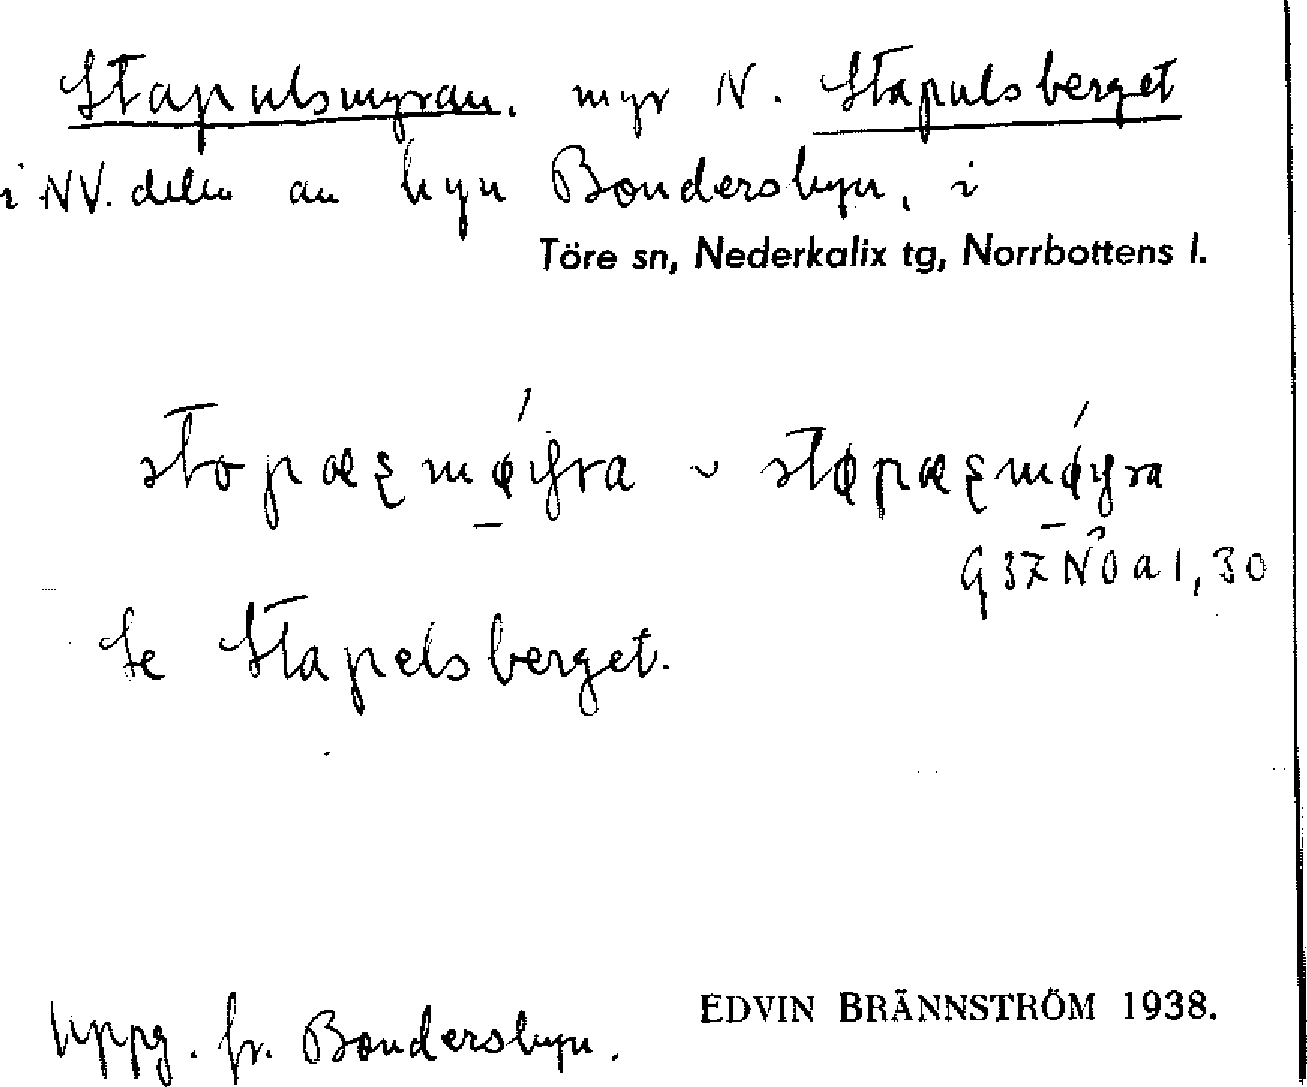 Stapulsmyran. myr N. Stapulsberget
i NV. delen av byn Bondersbyn, i
Töre sn, Nederkalix tg, Norrbottens l.
stopæʂmǿyra ~ støpæʂmǿyra
G 37 NÖ a 1, 30
Se Stapelsberget.
Uppg. fr. Bondersbyn.
EDVIN BRÄNNSTRÖM 1938.